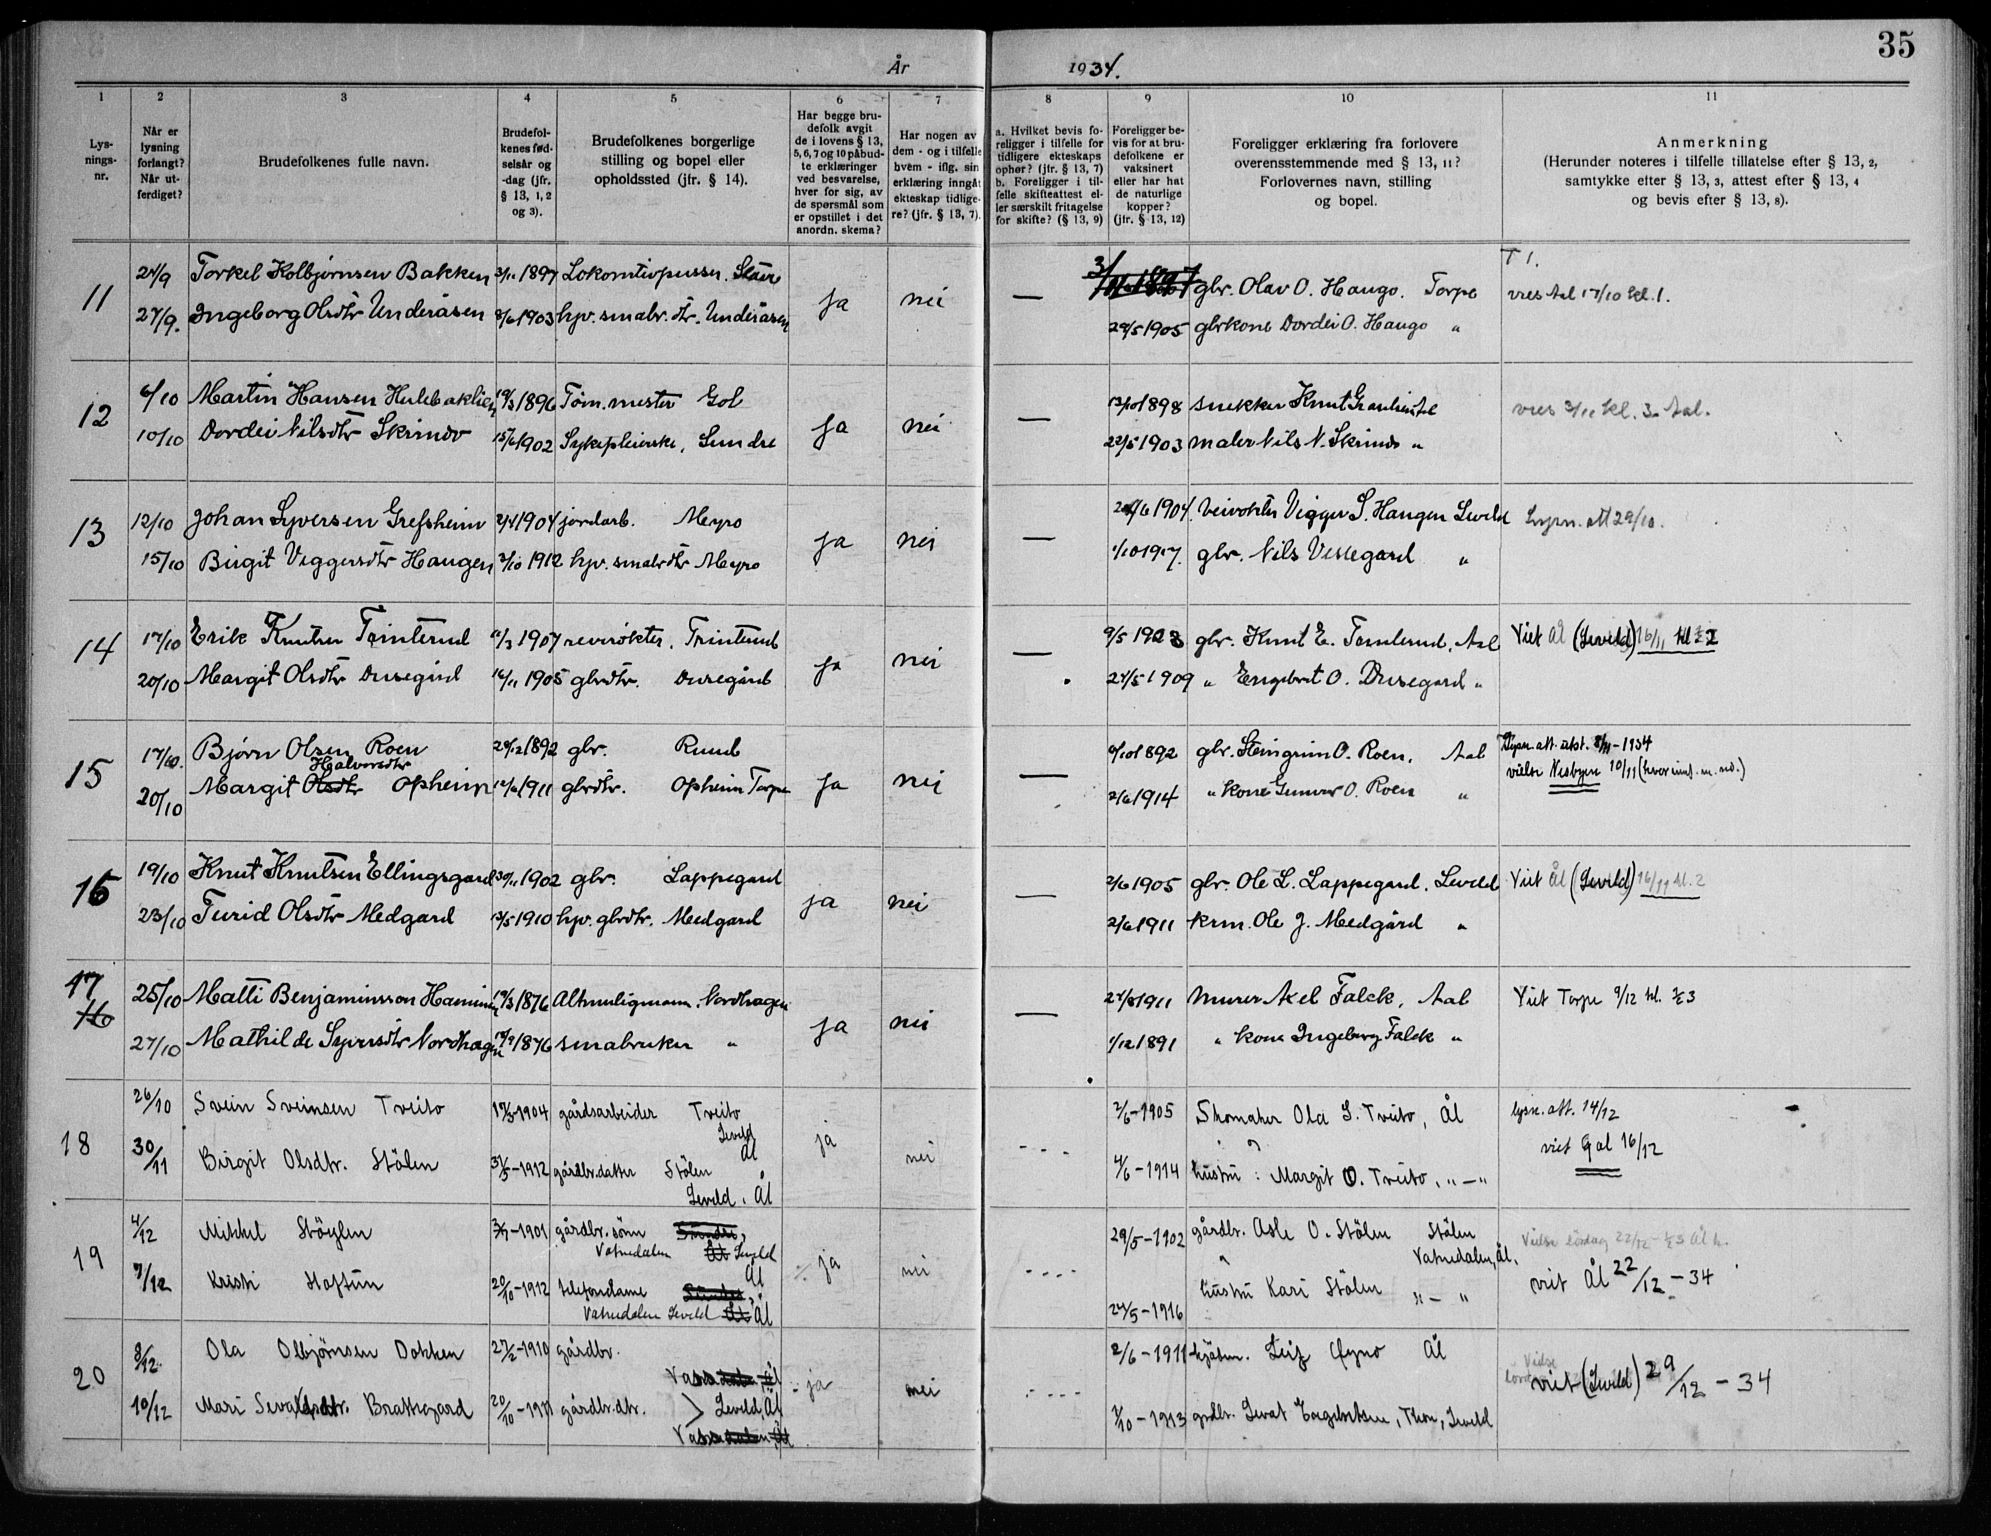 35
År 1934.
1
2
3
4
5
6
7
8
9
10
11
Lys-
nings-
nr.
Når er
lysning
forlangt?
Når ut-
ferdiget?
Brudefolkenes fulle navn.
Brudefol-
kenes fød-
selsår og
-dag (jfr.
§ 13, 1, 2
og 3).
Brudefolkenes borgerlige
stilling og bopel eller
opholdssted (jfr. § 14).
Har begge bru-
defolk avgit
de i lovens § 13,
5, 6, 7 og 10 påbud-
te erklæringer
ved besvarelse,
hver for sig, av
de spørsmål som
er opstillet i det
anordn. skema?
Har nogen av
dem - og i tilfelle
hvem - iflg. sin
erklæring inngåt
ekteskap tidlige-
re? (jfr. § 13, 7).
a. Hvilket bevis fo-
religger i tilfelle for
tidligere ekteskaps
ophør? (jfr. § 13, 7)
b. Foreligger i til-
felle skifteattest el-
ler særskilt fritagelse
for skifte? (§ 13, 9)
Foreligger be-
vis for at bru-
defolkene er
vaksinert
eller har hat
de naturlige
kopper?
(jfr. § 13, 12)
Foreligger erklæring fra forlovere
overensstemmende med § 13, 11?
Forlovernes navn, stilling
og bopel.
Anmerkning
(Herunder noteres i tilfelle tillatelse efter § 13, 2,
samtykke efter § 13, 3, attest efter § 13, 4
og bevis efter § 13, 8).
11
24/9 Torkel Kolbjørnsen Bakken 3/11 1897 Lokomtivpusser. ja nei — 3/ glr. Olav O. Haugo. Torpe
27/9. Ingeborg Olsdtr Underåsen 8/6 1903 hjv. smabr. dtr. Underåsen 29/5 1905 glrkone Dordei O. Haugo " vies Aal 17/10 kl. 1.
12
6/10 Martin Hansen Hulebaklien 19/3 1896 Tøm. mester Gol ja nei — 13/10 1898 snekker Knut Aal vies 3/11 kl. 3. Aal.
10/10 Dordei Nilsdtr Skrindo 15/6 1902 Sykepleierske, Sundre 22/5 1903 maler Nils N. Skrindo "
13
12/10 Johan Syversen Grefsheim 2/4 1904 jordarb. Myro ja nei — 1904. Veivokter Vigger S. Haugen Leveld Lysn. att 29/10.
15/10 Birgit Viggersdtr Haugen 3/10 1912 hjv. smabrdtr Myro 1/10 1917. glr. Nils Vessegard "
14
17/10 Erik Knutsen Trinterud 11/3 1907 revirøkter, Trinterud ja nei — 9/5 1923 glr. Knut E. Aal Viet Ål (Leveld) 16/11 kl
20/10 Margit Olsdtr Dusegård 16/11 1905 glrdtr. Dusegård 24/5 1909 " Engebret O. Dusegard "
15
17/10. Bjørn Olsen Roen 29/12 1892 glr. Ruud ja nei — 9/10 1892 glr. Steingrim O. Roen, Aal Lysn. att. utst. 8/11-1934
Halvorsdtr
20/10 Margit Olsdtr Opheim 12/6 1911 glrdtr. Opheim Torpe 2/6 1914 " kone Gunvor O. Roen " vielse Nesbyen 10/11
16
19/10 Knut Knutsen Ellingsgard 30/11 1902 glr. Lappegard ja nei — 2/6 1905 glr. Ole L. Lappegard, Leveld Viet Ål (Leveld) 16/11 kl. 2
23/10 Turid Olsdtr Medgard 13/5 1910 hjv. glrdtr. Medgard 2/6 1911 krm. Ole J. Medgård "
17
16
25/10 Matti Benjaminsson 19/3 1876 Altmuligmann. Nordhagen ja nei — 24/8 1911 Murer Axel Falck, Aal Viet Torpe 9/12 kl. ½3
27/10 Mathilde Syversdtr Nordhagen 19/9 1876 smabruker " 1/12 1891 " kone Ingeborg Falck "
18
26/10 Svein Sveinsen Tveito 17/3-1904 gårdsarbeider Tveito ja nei 2/6-1905 Skomaker Ola S. Tveito, Ål lysn. att. 14/12
Leveld
Ål
30/11 Birgit Olsdtr. Stölen 31/5-1912 gårdbr.datter Stölen 4/6-1914 hustru: Margit O. Tveito, "—" viet Gol 16/12
Leveld, Ål
19
4/12 Mikkel Stöylen 3/7-1901 gårdbr.sönn ja nei 29/5-1902 gårdbr. Asle O. Stölen Stölen Vielse lördag 22/12 - ½3 Ål k.
Vatnedalen Leveld Vatnedalen, Ål.
Ål
7/12 Kristi Hoftun 20/10-1912 telefondame 24/5-1916 hustru Kari Stölen "—" viet Ål 22/12-34
Vatnedalen Leveld Ål
20
8/12. Ola Olbjörnsen Dokken 27/2-1910 gårdbr. ja nei 2/6-1911 kjöbm. Leif Öyno Ål Vielse
10/12 Mari Sevatsdtr. Brattegard 20/10-1911 gårdbr.dtr. Leveld, Ål 3/10-1913 grdbr. Sevat Engebretsen, Thon, Leveld viet (Leveld) 29/12-34